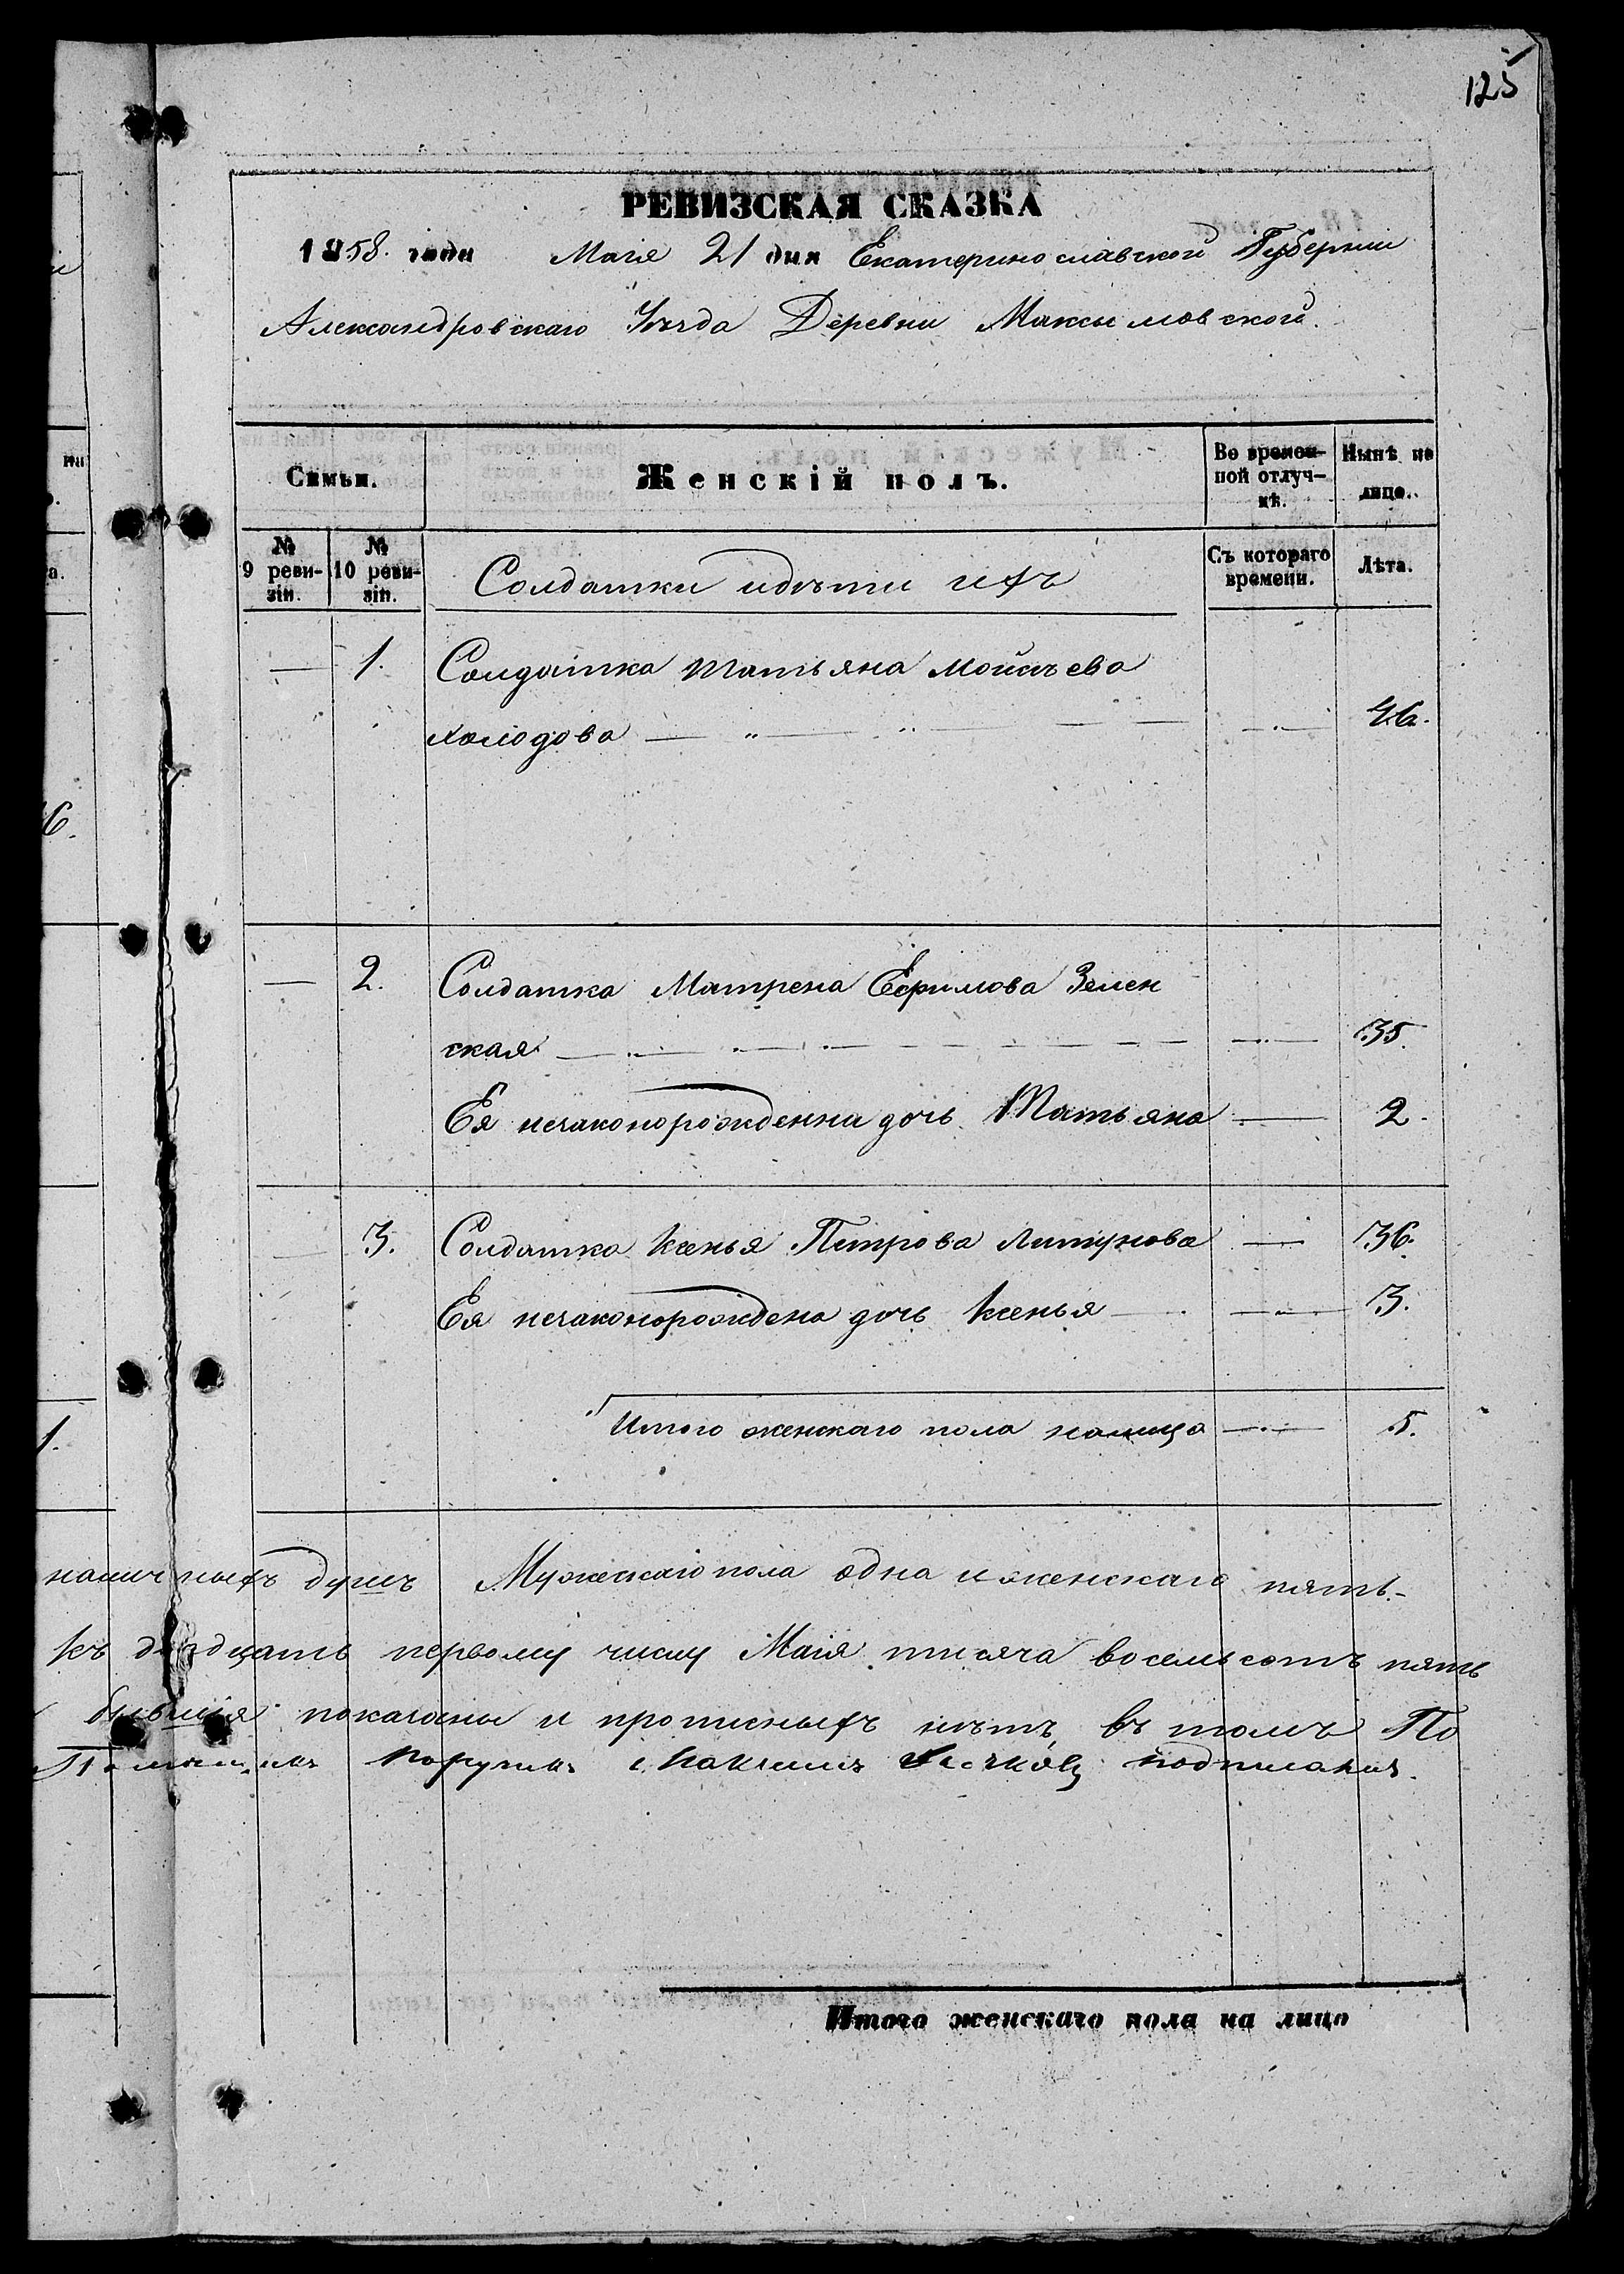 125
РЕВИЗСКАЯ СКАЗКА
1858. года Маія 21 дня Екатеринославской Губерніи
Александровскаго Уѣзда Деревни Максимовской.
Семьи.
Женскій полъ.
Во времен-
ной отлуч-
кѣ.
Нынѣ на
лицо.
№
9 реви-
зіи.
№
10 реви-
зіи.
Солдатки идѣти ихъ
Съ котораго
времени.
Лѣта.
— 1. Солдатка Татьяна Мойсѣева
Холодова — 46.
— 2. Солдатка Матрена Ефимова Зелен
ская — 35.
Ея незаконорожденна дочь Татьяна — 2.
— 3. Солдатка Ксенья Петрова — 36.
Ея незаконорождена дочь Ксенья — 3.
Итого женскаго пола налицо — 5.
наличныхъ душъ Мужескаго пола одна и женскаго пять.-
къ двадцать первому числу Маія тисяча восемьсотъ пять
бывшія показаны и прописныхъ нѣтъ въ томъ По
подписался.
Итого женскаго пола на лицо
6.
1.